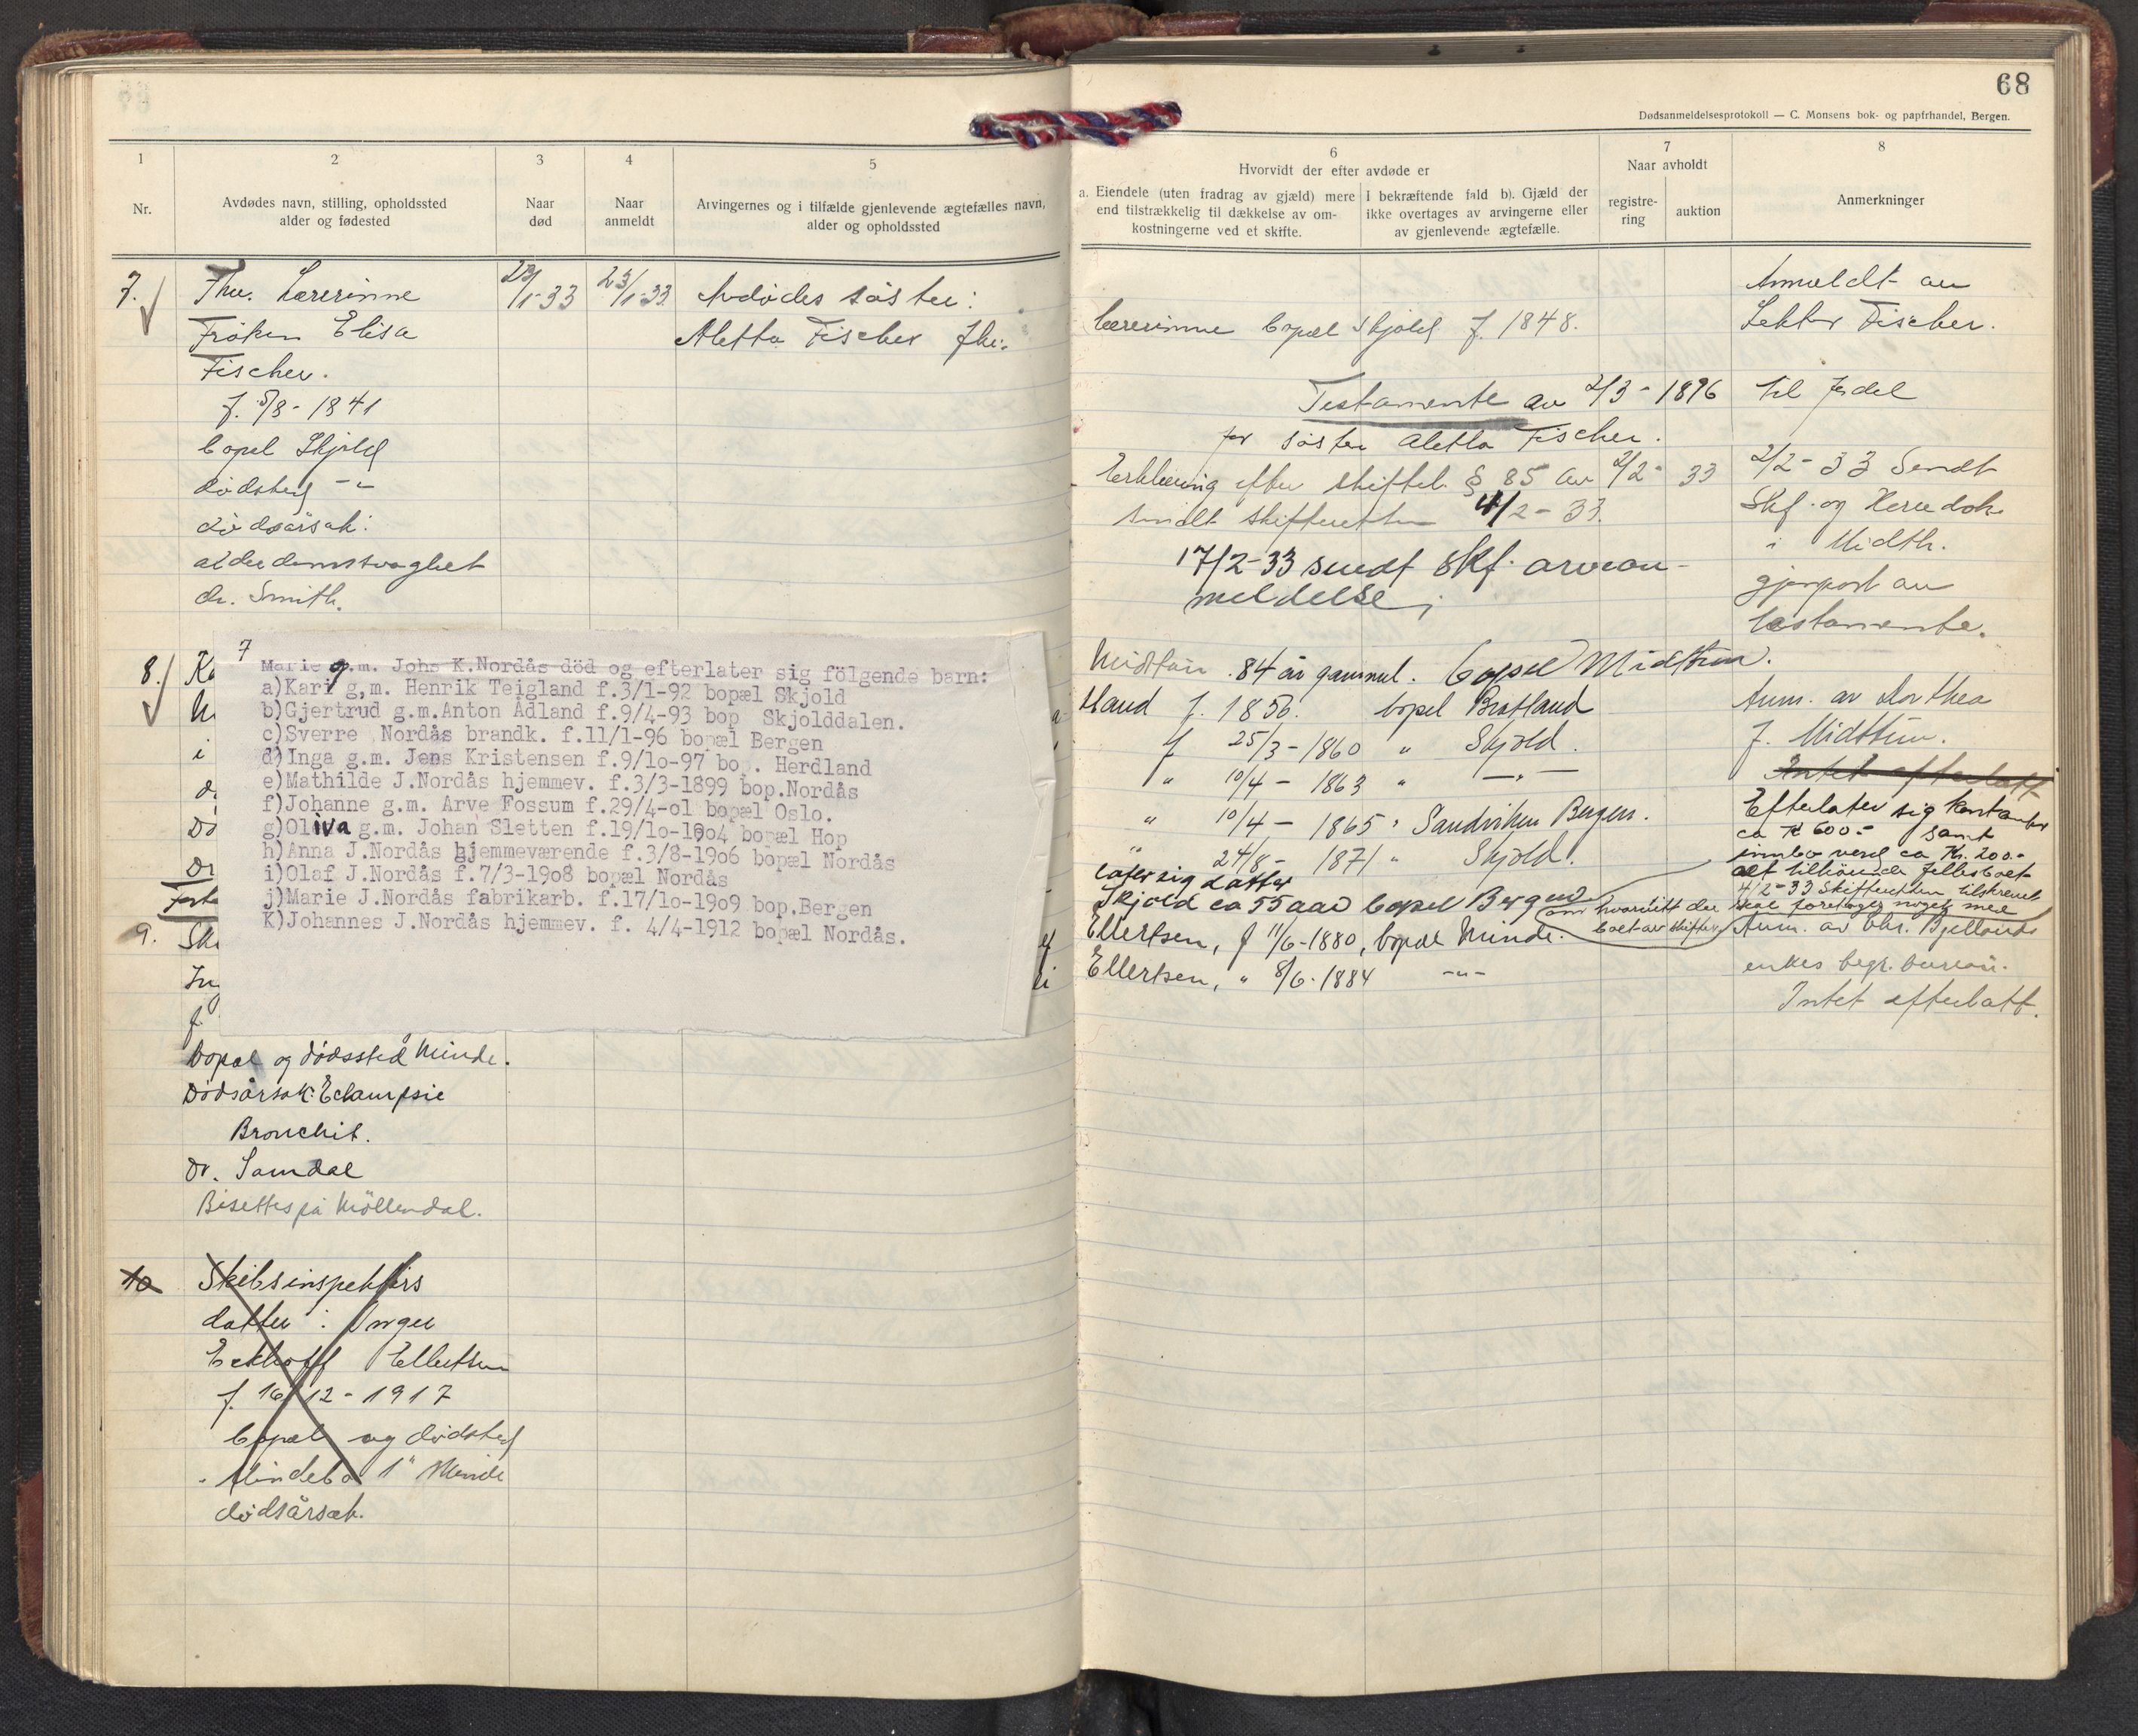 68
Dødsanmeldelsesprotokoll — C. Monsens bok- og papirhandel, Bergen.
1
Nr.
2
Avdødes navn, stilling, opholdssted
alder og fødested
3
Naar
død
4
Naar
anmeldt
5
Arvingernes og i tilfælde gjenlevende ægtefælles navn,
alder og opholdssted
6
Hvorvidt der efter avdøde er
a. Eiendele (uten fradrag av gjæld) mere
end tilstrækkelig til dækkelse av om-
kostningerne ved et skifte.
I bekræftende fald b). Gjæld der
ikke overtages av arvingerne eller
av gjenlevende ægtefælle.
7
Naar avholdt
registre-
ring
auktion
8
Anmerkninger
7.
Fhv. Lærerinne
Frøken Elisa
Fischer.
f. 5/8 - 1841
bopel Skjold
dødsted -"-
dødsårsak:
alderdomssvaghet
dr. Smith.
1-33
23/1-33
Avdødes søster:
Aletta Fischer fhv.
lærerinne bopæl Skjold f. 1848.
Testamente av 2/3 - 1896
for søster Aletta Fischer.
Erklæring efter skiftel. § 85 av 2/2- 33
sendt skifteretten 4/2 - 33.
17/2-33 sendt Skf. arvean-
meldelse
Anmeldt av
Lektor Fischer.
2/2- 33 Sendt
Skf. og
i Midth.
gjenpart av
testamente.
8.
7
Marie g.m. Johs K.Nordås död og efterlater sig fölgende barn:
a)Kari g,m. Henrik Teigland f.3/1-92 bopæl Skjold
b)Gjertrud g.m.Anton Ådland f.9/4-93 bop Skjolddalen.
c)Sverre Nordås brandk. f.11/1-96 bopæl Bergen
d)Inga g.m. Jens Kristensen f.9/lo-97 bo. . Herdland
e)Mathilde J.Nordås hjemmev. f.3/3-1899 bop.Nordås
f)Johanne g.m. Arve Fossum f.29/4-ol bopæl Oslo.
g)Oliva g.m. Johan Sletten f.19/lo-19o4 bopæl Hop
h)Anna J.Nordås hjemmeværende f.3/8-19o6 bopæl Nordås
i)Olaf J.Nordås f.7/3-19o8 bopæl Nordås
j)Marie J.Nordås fabrikarb. f.17/lo-19o9 bop.Bergen
K)Johannes J.Nordås hjemmev. f. 4/4-1912 bopæl Nordås.
Midttun. 84 år gammel. bopel Midttun.
f. 1856. bopel Bratland
f 25/3 - 1860 " Skjold.
" 10/4 - 1863 " —"—
" 10/4 - 1865 " Sandviken Bergen.
" 24/8 - 1871 " Skjold.
later sig datter
Skjold ca 55 aar bopel Bergen
Anm. av Dorthea
J. Midttun.
Intet efterlatt
Efterlater sig kontanter
ca Kr 600.- samt
innbo verd ca Kr. 200.-
alt tilhørende fellesboet
4/2-33 Skifteretten tilskrevet
om hvorvidt der skal foretages noget med
boet av skifter
9.
bopæl og dødssted Minde.
Dødsårsak: Eclampsie
Bronchit.
Dr. Samdal
Bisettes på Möllendal.
Ellertsen, f 11/6-1880, bopæl Minde.
Ellertsen, " 8/6-1884 -"-
Anm. av Chr. Bjellands
enkes begr. bureau.
Intet efterlatt.
10
Skibsinspektørs
datter: Inger
Eckhoff Ellertsen
f. 16/12 - 1917
bopæl og dødsted
Mindebo 1" Minde
dødsårsak.